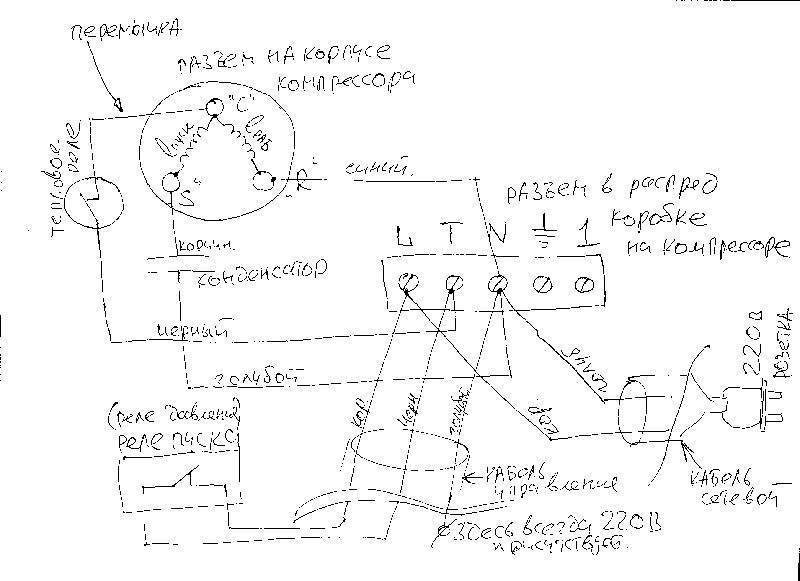 перемычка
разъем на корпусе
компрессора
"C"
Lпуск
Lраб
"S"
"R"
синий
тепловое
реле
разъем в распред
коробке
на компрессоре
L T N 1
коричн.
конденсатор
черный
голубой
220В
розетка
кор
(реле давления)
реле пуска
кор
черн
голубой
кабель
управления
кабель
сетевой
здесь всегда 220В
присутствует.